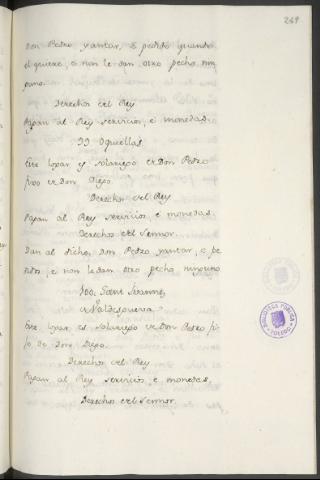 269
Don Pedro yantar, e pedido quando
el quiere, e non le dan otro pecho nin
guno.
Derechos del Rey
Pagan al Rey servicios, e monedas.
99 Oquellas
Este logar es solariego de Don Pedro
fijo de Don Diego.
Derechos del Rey
Pagan al Rey servicios, e monedas.
Derechos del Sennor.
Dan al dicho Don Pedro yantar, e pe
didos, e non le dan otro pecho ninguno
100. Sant
Este logar es solariego de Don Pedro fi
jo de Don Diego.
Derechos del Rey
Pagan al Rey servicios, e monedas.
Derechos del Sennor.
BIBLIOTECA PUBLICA
TOLEDO